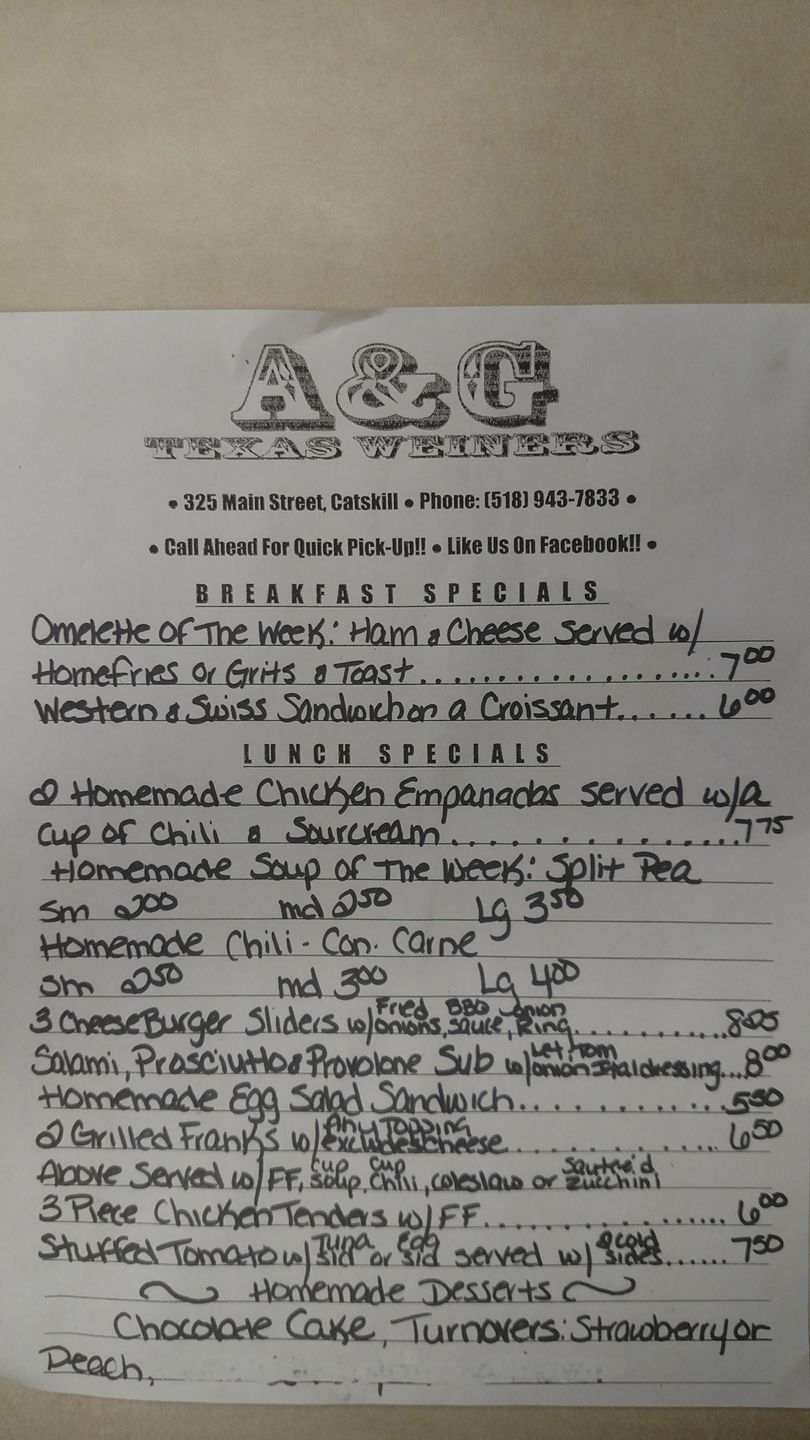 A & G
TEXAS WEINERS
• 325 Main Street, Catskill • Phone: (518) 943-7833 •
• Call Ahead For Quick Pick-Up!! • Like Us On Facebook!! •
BREAKFAST SPECIALS
Omelette Of The Week: Ham & Cheese served w/
Homefries or Grits & Toast....................7.00
Western & Swiss Sandwich on a Croissant......6.00
LUNCH SPECIALS
2 Homemade Chicken Empanadas served w/a
Cup of Chili & Sourcream...............7.75
Homemade Soup of The Week: Split Pea
Sm 2.00 md 2.50 Lg 3.50
Homemade Chili-Con. Carne
Sm 2.50 md 3.00 Lg 4.00
3 CheeseBurger Sliders w/Fried onions, BBQ sauce, onion Ring..........
Salami, Prosciutto & Provolone Sub w/Let Tom onion Ital dressing...8.00
Homemade Egg Salad Sandwich............5.50
2 Grilled Franks w/Any Topping excludes cheese............6.50
Above Served w/FF, cup soup, cup chili, coleslaw or Sautee'd zucchini
3 Piece Chicken Tenders w/FF.................6.00
Stuffed Tomato w/Tuna Sld or Egg Sld served w/2 cold sides......7.50
Homemade Desserts
Chocolate Cake, Turnovers: Strawberry or
Peach,